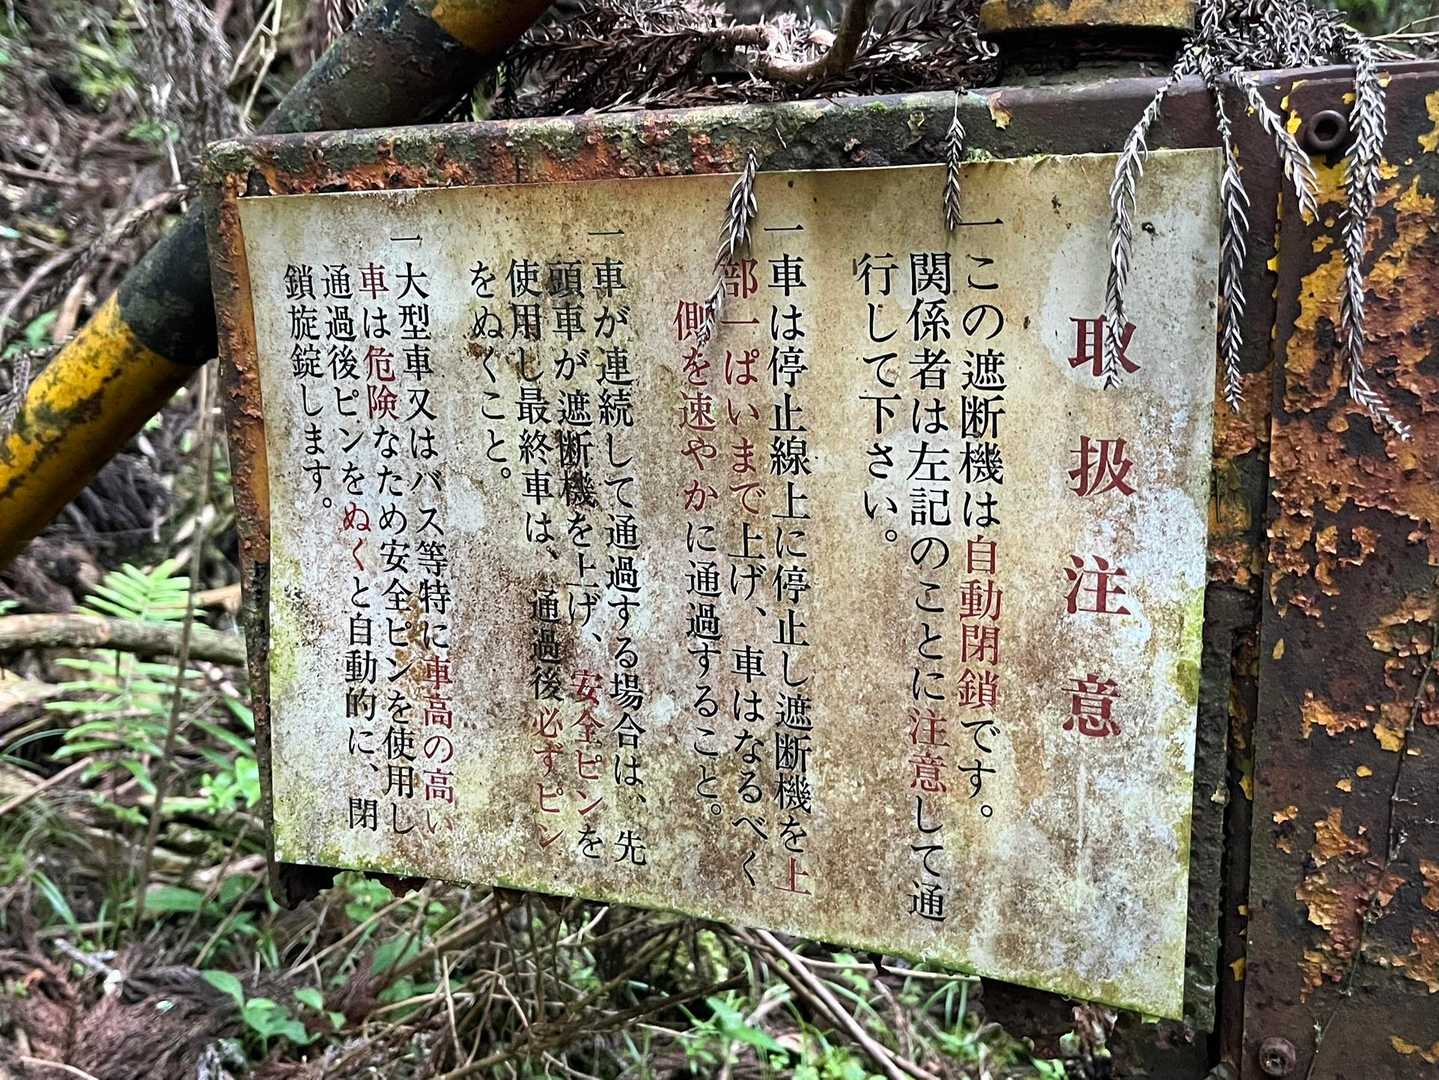 取扱注意
一この遮断機は自動閉鎖です。
関係者は左記のことに注意して通
行して下さい。
一車は停止線上に停止し遮断機を上
部一ぱいまで上げ、車はなるべく
側を速やかに通過すること。
一車が連続して通過する場合は、先
頭車が遮断機を上げ、安全ピンを
使用し最終車は、通過後必ずピン
をぬくこと。
一大型車又はバス等特に車高の高い
車は危険なため安全ピンを使用し
通過後ピンをぬくと自動的に、閉
鎖旋錠します。